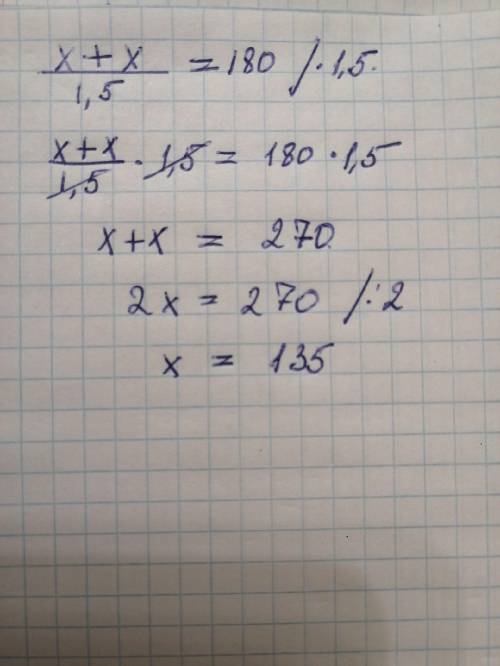 x + x / 1,5 = 180 /· 1,5.
x+x / 1,5 · 1,5 = 180 · 1,5
x+x = 270.
2x = 270 /:2
x = 135